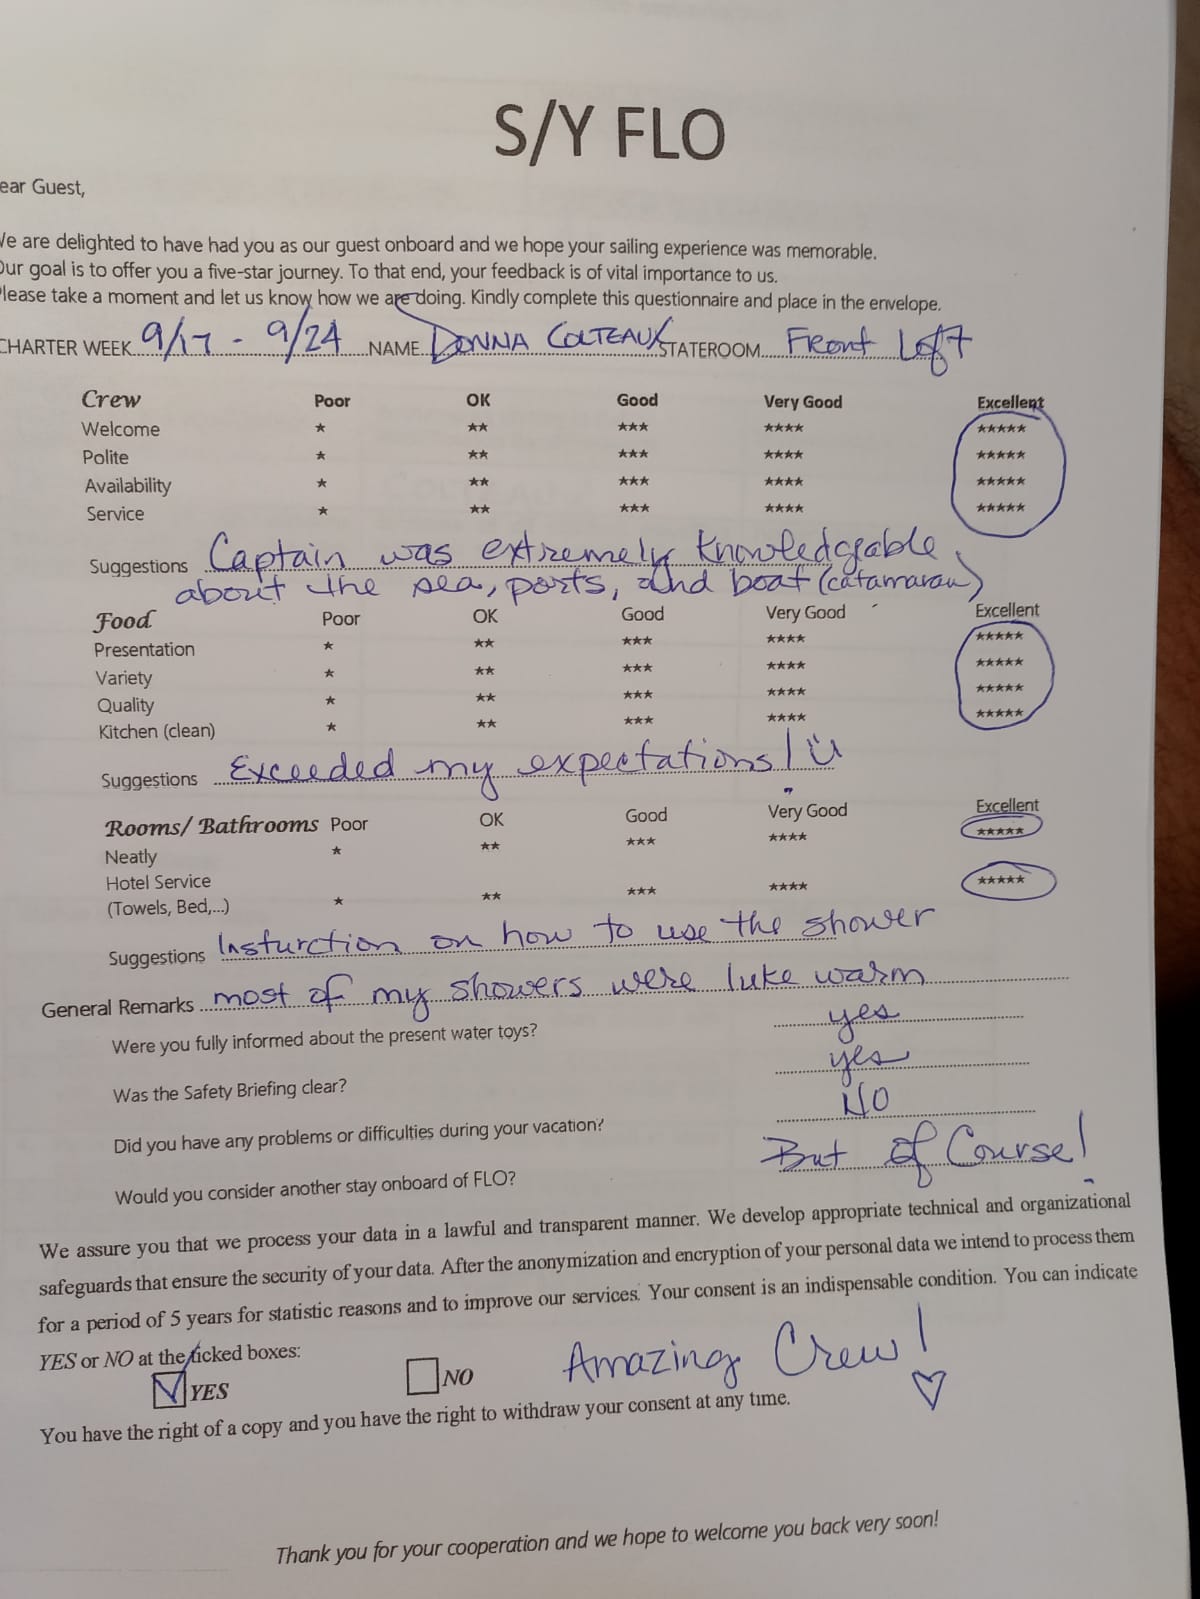 S/Y FLO
ear Guest,
We are delighted to have had you as our guest onboard and we hope your sailing experience was memorable.
Our goal is to offer you a five-star journey. To that end, your feedback is of vital importance to us.
Please take a moment and let us know how we are doing. Kindly complete this questionnaire and place in the envelope.
CHARTER WEEK 9/17 - 9/24 NAME DONNA COLTEAUX STATEROOM Front Left
Crew Poor OK Good Very Good Excellent
Welcome * ** *** **** *****
Polite * ** *** **** *****
Availability * ** *** **** *****
Service * ** *** **** *****
Suggestions Captain was extremely knowledgeable
about the sea, ports, and boat (catamaran)
Food Poor OK Good Very Good Excellent
Presentation * ** *** **** *****
Variety * ** *** **** *****
Quality * ** *** **** *****
Kitchen (clean) * ** *** **** *****
Suggestions Exceeded my expectations!
Rooms/ Bathrooms Poor OK Good Very Good Excellent
Neatly * ** *** **** *****
Hotel Service
(Towels, Bed,...) * ** *** **** *****
Suggestions Insturction on how to use the shower
General Remarks most of my showers were luke warm
Were you fully informed about the present water toys? yes
Was the Safety Briefing clear? yes
Did you have any problems or difficulties during your vacation? NO
Would you consider another stay onboard of FLO? But of Course!
We assure you that we process your data in a lawful and transparent manner. We develop appropriate technical and organizational
safeguards that ensure the security of your data. After the anonymization and encryption of your personal data we intend to process them
for a period of 5 years for statistic reasons and to improve our services. Your consent is an indispensable condition. You can indicate
YES or NO at the ticked boxes:
YES NO Amazing Crew!
You have the right of a copy and you have the right to withdraw your consent at any time.
Thank you for your cooperation and we hope to welcome you back very soon!